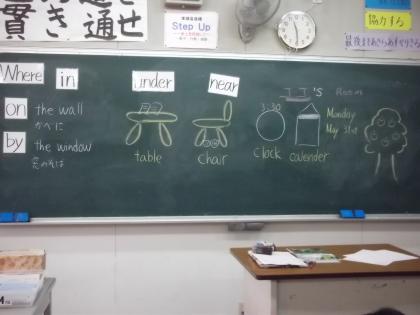 貫き通せ
Step Up
協力する
Where in under near
I I's Room
on the wall
かべに
by the window
窓のそば
table
chair
3:30
clock
calender
Monday
May 31st